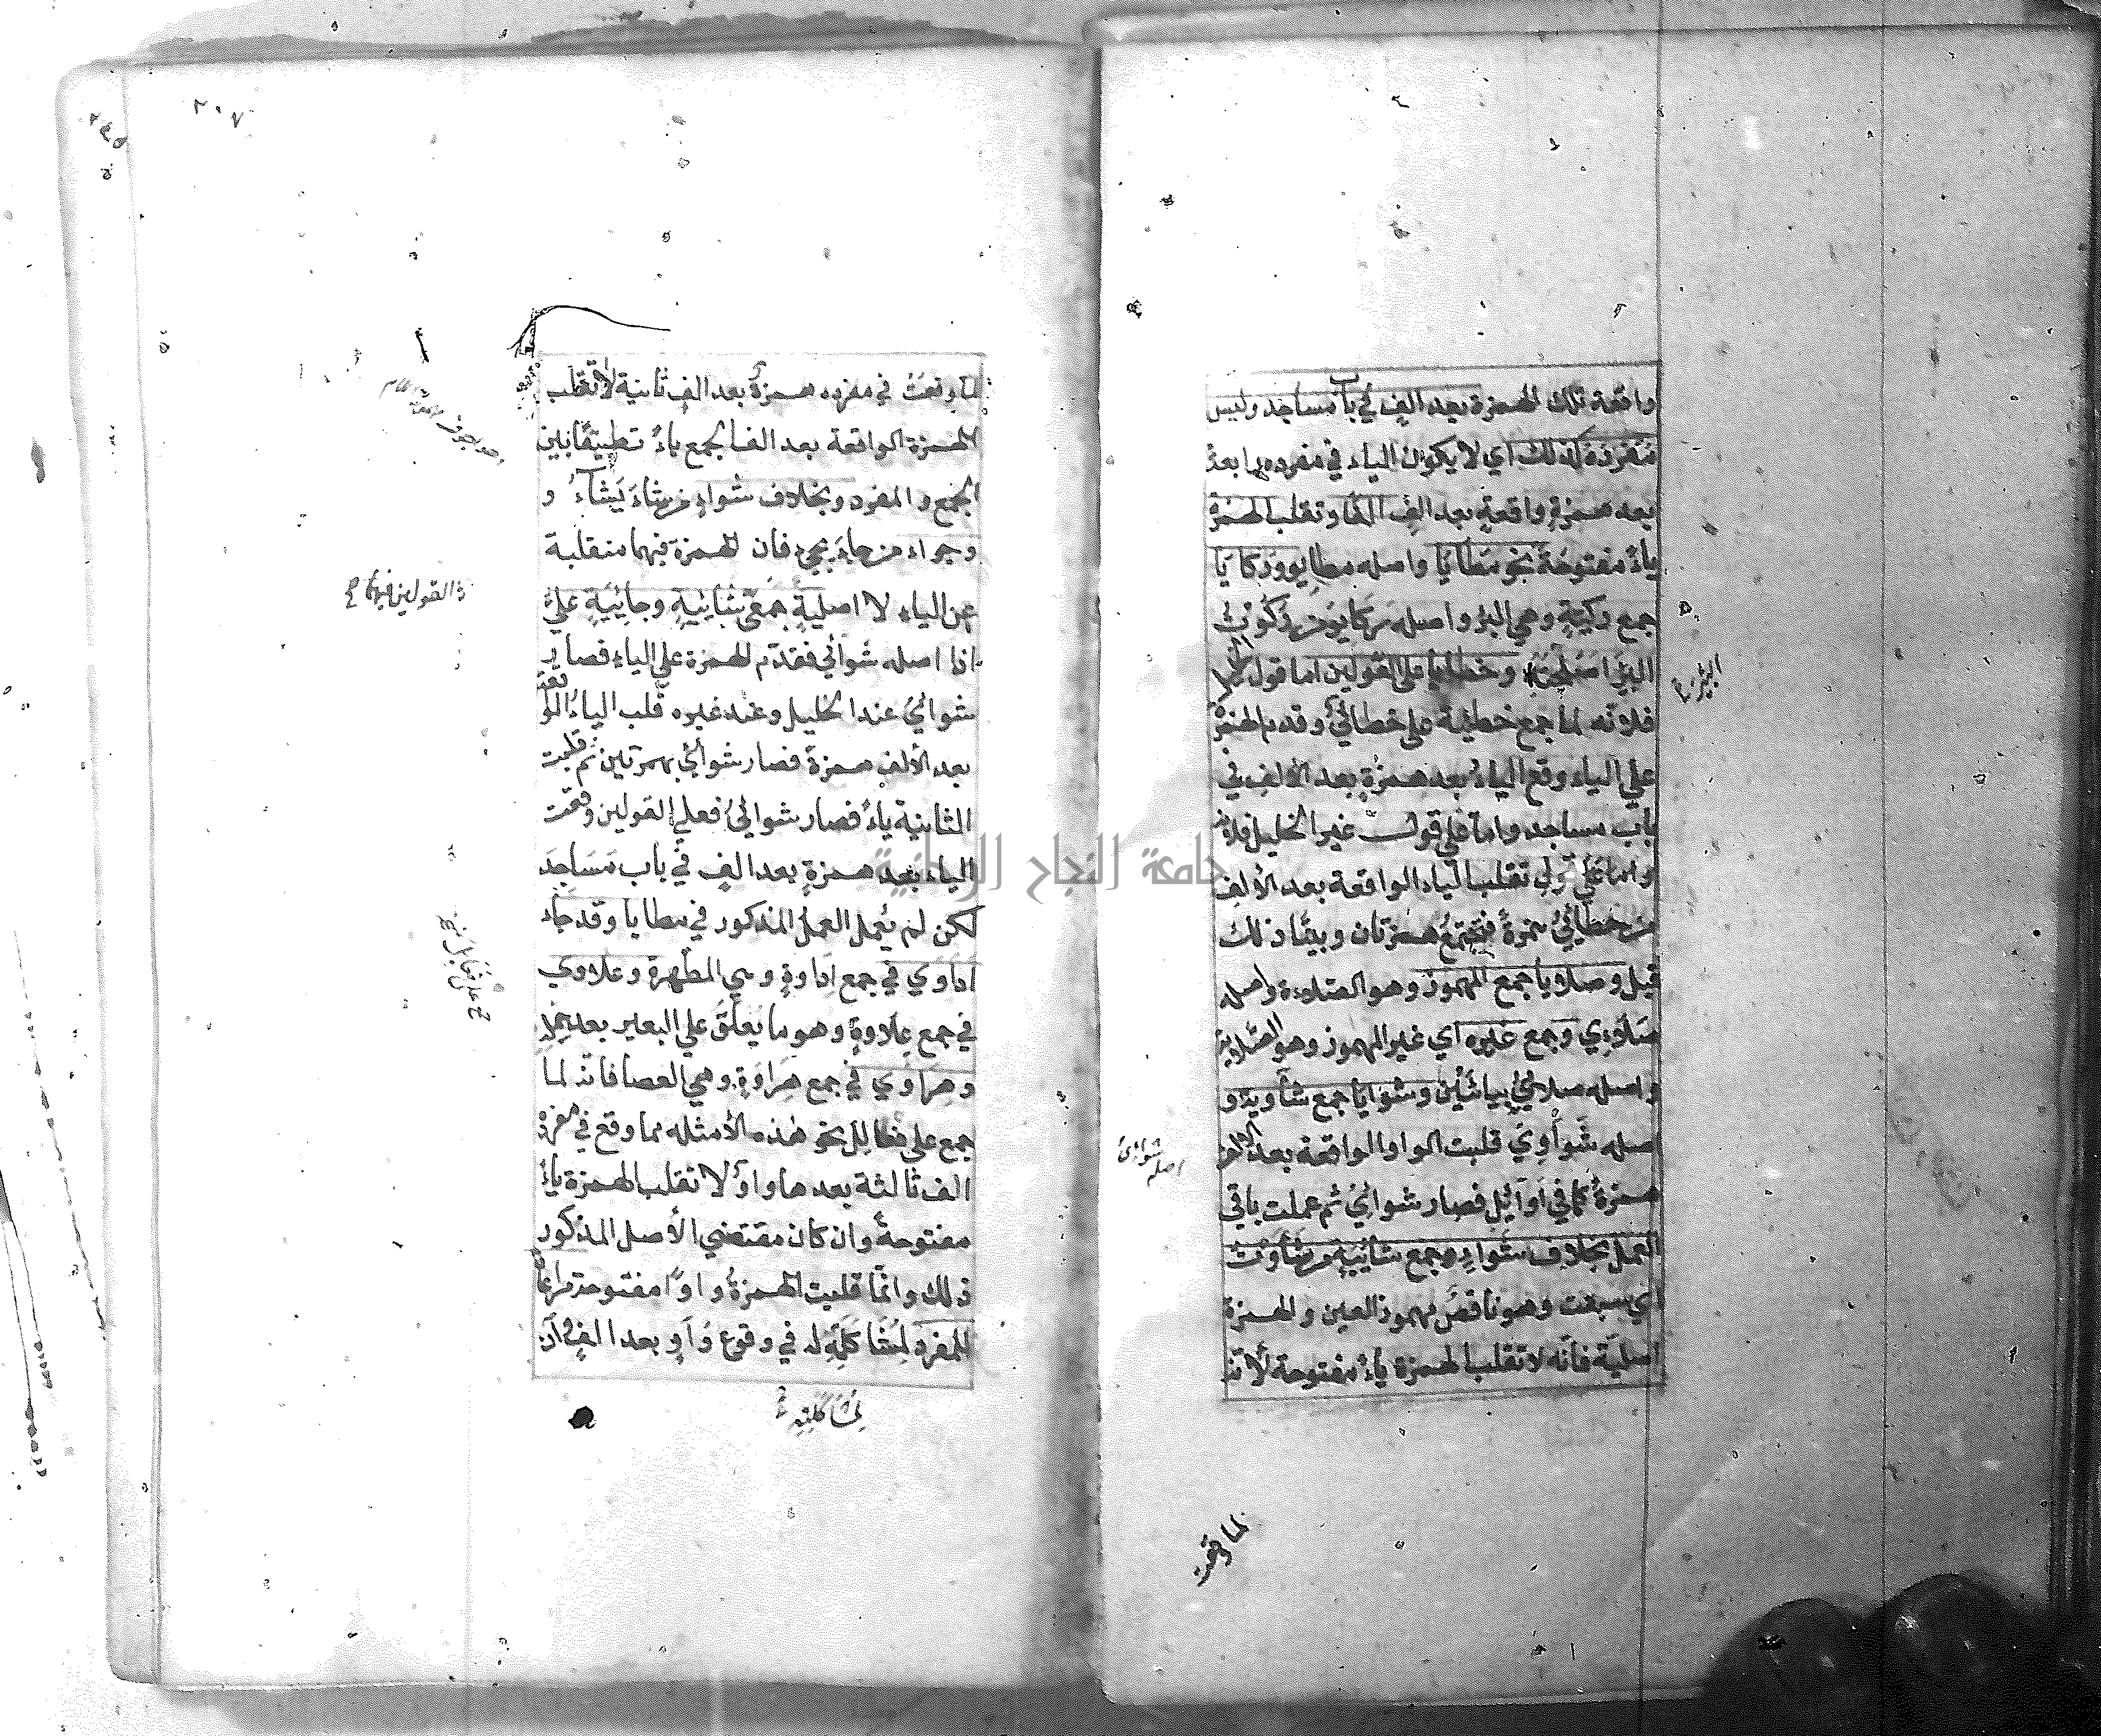 واقعة تلك الهمزة بعد الف في باب مساجد وليس
مفرده كذلك اي لا يكون الياء في مفرده مما بعد
بعد همزة واقعة بعد الف الفا وتقلب الهمزة
ياء مفتوحة نحو مطايا واصله مطايو وركايا
جمع ركية وهي البئر واصله ركايو من ركوت
البئر وخطايا على القولين اما قول الخليل
فلانه لما جمع خطيئة على خطائي وقدم الهمزة
علي الياء وقع الياء بعد همزة بعد الالف في
باب مساجد واما على قول غير الخليل فلانه
تقلب الياء الواقعة بعد الالف
من خطائي همزة فتجتمع همزتان وبينا ذلك
قيل وصلايا جمع المهموز وهو الصلاءة واصله
صلاوي وجمع غيره اي غير المهموز وهو الصلاية
واصله صلائي بيائين وشوايا جمع شاوية و
اصله شواوي قلبت الواو الواقعة بعد الالف
همزة كما في اوائل فصار شوائي ثم عملت باقي
العمل بخلاف شواء جمع شائية من شأوت
اي سبقت وهو ناقص مهموز العين والهمزة
اصلية فانه لا تقلب الهمزة ياء مفتوحة لانه
البئر
اصله شوائي
لما وقعت
٢٠٧
لما وقعت في مفرده همزة بعد الف ثانية لا تقلب
الهمزة الواقعة بعد الف الجمع ياء تطبيقا بين
الجمع والمفرد وبخلاف شواء من شاء يشاء و
وجواء من جاء يجيء فان الهمزة فيهما منقلبة
عن الياء لا اصلية جمعي شائية وجائية علي
اذا اصله شوائي فقدم الهمزة علي الياء فصار
شوائي عند الخليل وعند غيره قلب الياء الواقعة
بعد الألف همزة فصار شوائئ بهمزتين ثم قلبت
الثانية ياء فصار شوائي فعلي القولين وقعت
الياء بعد همزة بعد الف في باب مساجد
لكن لم يعمل العمل المذكور في مطايا وقد جاء
اداوي في جمع اداوة وهي المطهرة وعلاوي
في جمع علاوة وهو ما يعلق علي البعير بعد حمله
وهراوي في جمع هراوة وهي العصا فانه لما
جمع على فعائل نحو هذه الأمثله مما وقع في مفرده
الف ثالثة بعدها واو لا تقلب الهمزة ياء
مفتوحة وان كان مقتضي الأصل المذكور
ذلك وانما قلبت الهمزة واوا مفتوحة مراعاة
للمفرد لمشاكلته له في وقوع واو بعد الف
القولين فيهما
لمشاكلته
جامعة النجاح الوطنية